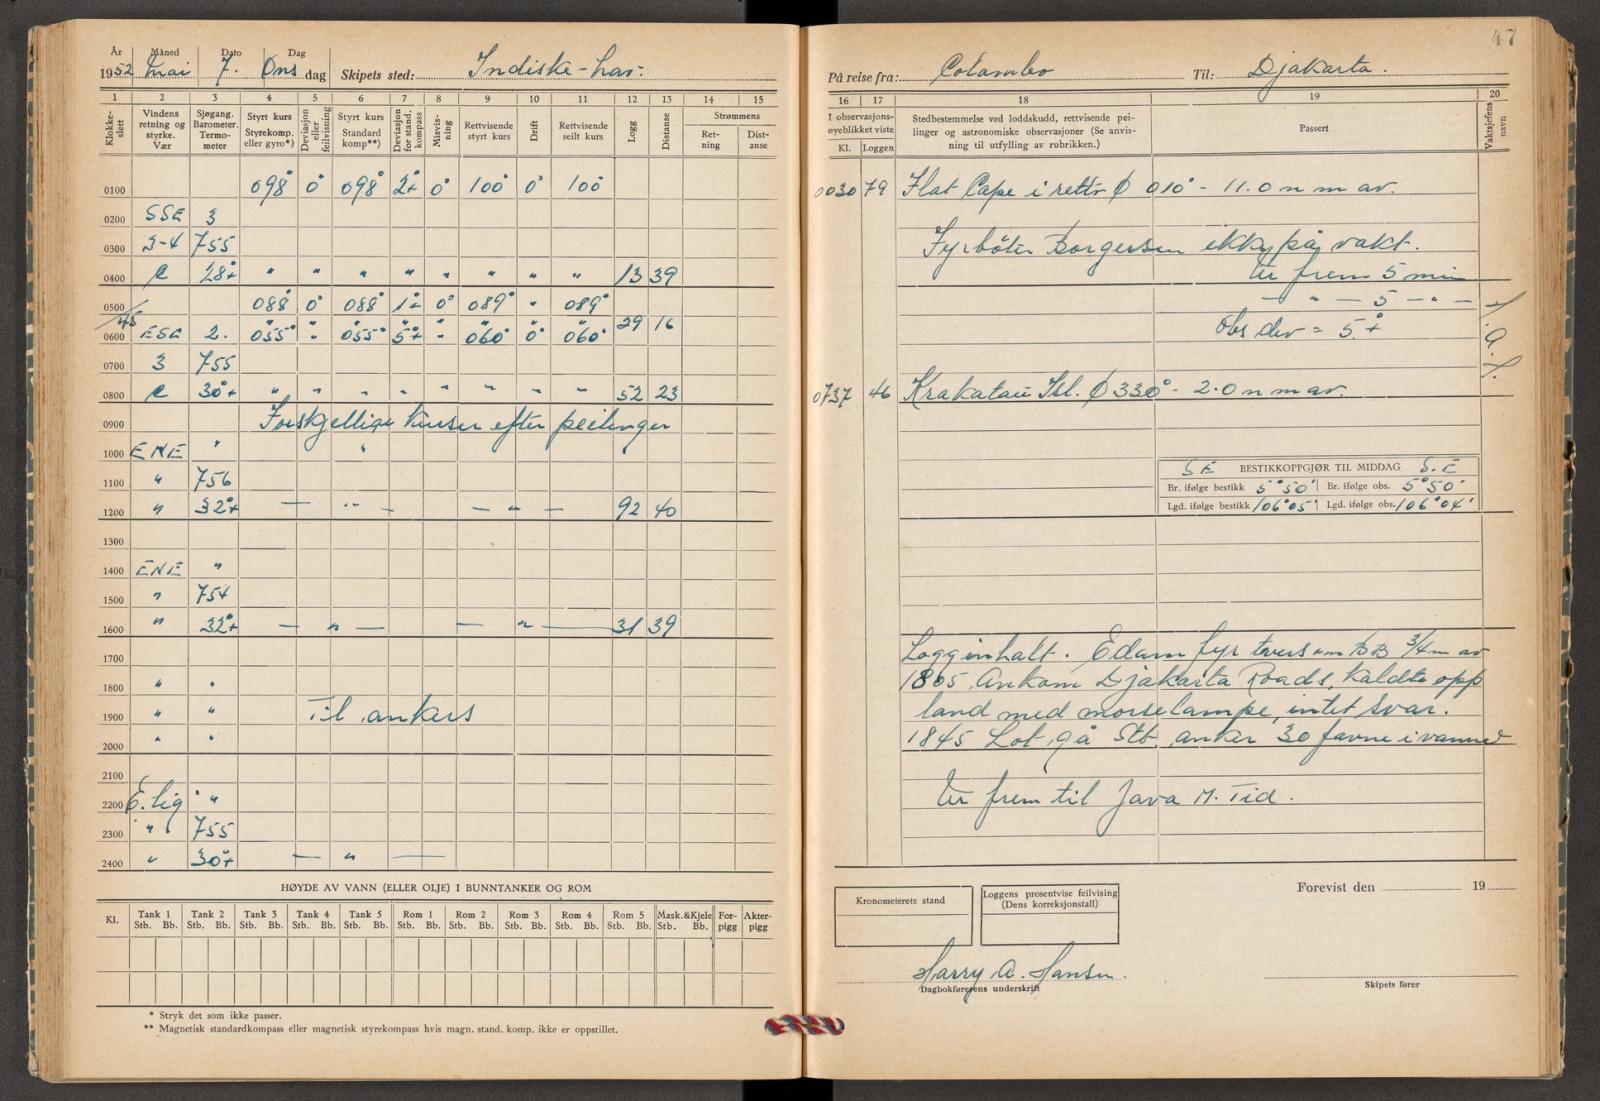 År Måned Dato Dag
1952 Mai 7. Ons dag Skipets sted: Indiske-hav.
1 2 3 4 5 6 7 8 9 10 11 12 13 14 15
Klokkeslett
Vindens retning og styrke. Vær
Sjøgang. Barometer. Termometer
Styrt kurs Styrekomp. eller gyro*)
Deviasjon eller feilvisning
Styrt kurs Standard komp**)
Deviasjon for stand. kompass
Misvisning
Rettvisende styrt kurs
Drift
Rettvisende seilt kurs
Logg
Distanse
Strømmens
Retning Distanse
0100 098° 0° 098° 2°+ 0° 100° 0° 100
0200 SSE 3
0300 3-4 755
0400 c 28°+ " " " " " " " " 13 39
0500 088° 0° 088° 1°+ 0° 089° " 089°
45
0600 ESE 2. 055° " 055° 5°+ " 060° 0° 060° 29 16
0700 3 755
0800 c 30°+ " " " " " " " " 52 23
0900 Forskjellige kurser efter peilinger
1000 ENE "
1100 " 756
1200 " 32°+ — " — — " — 92 40
1300
1400 ENE "
1500 " 754
1600 " 32°+ — " — — " — 31 39
1700
1800 " "
1900 " " Til ankers
2000 " "
2100
2200 E.lig " "
2300 " 755
2400 " 30°+ — " —
HØYDE AV VANN (ELLER OLJE) I BUNNTANKER OG ROM
Kl. Tank 1 Stb. Bb. Tank 2 Stb. Bb. Tank 3 Stb. Bb. Tank 4 Stb. Bb. Tank 5 Stb. Bb. Rom 1 Stb. Bb. Rom 2 Stb. Bb. Rom 3 Stb. Bb. Rom 4 Stb. Bb. Rom 5 Stb. Bb. Mask.&Kjele Stb. Bb. Forpigg Akterpigg
* Stryk det som ikke passer.
** Magnetisk standardkompass eller magnetisk styrekompass hvis magn. stand. komp. ikke er oppstillet.
47
På reise fra: Colombo Til: Djakarta.
16 17 18 19 20
I observasjonsøyeblikket viste
Kl. Loggen
Stedbestemmelse ved loddskudd, rettvisende peilinger og astronomiske observasjoner (Se anvisning til utfylling av rubrikken.)
Passert
Vaktsjefens navn
0030 79 Flat Cape i rettv ϕ 010° - 11.0 n m av.
Fyrbøter Borgersen ikke på vakt.
Ur frem 5 min
— " — 5 — " —
Obs dev = 5°+
0737 46 Krakatau Isl. ϕ 330° - 2.0 n m av.
SE BESTIKKOPPGJØR TIL MIDDAG S.E
Br. ifølge bestikk 5°50' Br. ifølge obs. 5°50'
Lgd. ifølge bestikk 106°05' Lgd. ifølge obs. 106°04'
Logg innhalt. Edam fyr tvers om BB 3/4 m av
1805 Ankom Djakarta Roads, kaldte opp
land med morselampe, intet svar.
1845 Lot gå Stb. anker 30 favne i vannet
Ur frem til Java M. Tid.
Kronometerets stand
Loggens prosentvise feilvising (Dens korreksjonstall)
Forevist den 19
Harry A. Hansen.
Dagbokførerens underskrift
Skipets fører